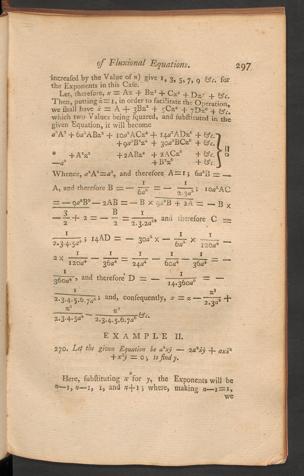 of Fluxional Equations. 297
increased by the Value of n) give 1, 3, 5, 7, 9 &c. for
the Exponents in this Case.
Let, therefore, x = Az + Bz³ + Cz⁵ + Dz⁷ + &c.
Then, putting ż = 1, in order to facilitate the Operation,
we shall have ẋ = A + 3Bz² + 5Cz⁴ + 7Dz⁶ + &c.
which two Values being squared, and substituted in the
given Equation, it will become
a²A² + 6a²ABz² + 10a²ACz⁴ + 14a²ADz⁶ + &c.
+ 9a²B²z⁴ + 30a²BCz⁶ + &c.
* + A²z² + 2ABz⁴ + 2ACz⁶ + &c.
—a² + B²z⁶ + &c. = 0
Whence, a²A² = a², and therefore A = 1; 6a²B = —
A, and therefore B = — 1/6a² = — 1/2.3a²; 10a²AC
= — 9a²B² — 2AB = — B × 9a²B + 2A = — B ×
— 3/2 + 2 = — B/2 = 1/2.3.2a², and therefore C =
1/2.3.4.5a⁴; 14AD = — 30a² × — 1/6a² × 1/120a⁴ —
2 × 1/120a⁴ — 1/36a⁴ = 1/24a⁴ — 1/60a⁴ — 1/36a⁴ = —
1/360a⁴, and therefore D = — 1/14.360a⁶ = —
1/2.3.4.5.6.7a⁶; and, consequently, x = z — z³/2.3a² +
z⁵/2.3.4.5a⁴ — z⁷/2.3.4.5.6.7a⁶ &c.
EXAMPLE II.
270. Let the given Equation be
= 0; to find y.
Here, substituting for y, the Exponents will be
n—1, n—1, 1, and n+1; where, making n—1=1,
we